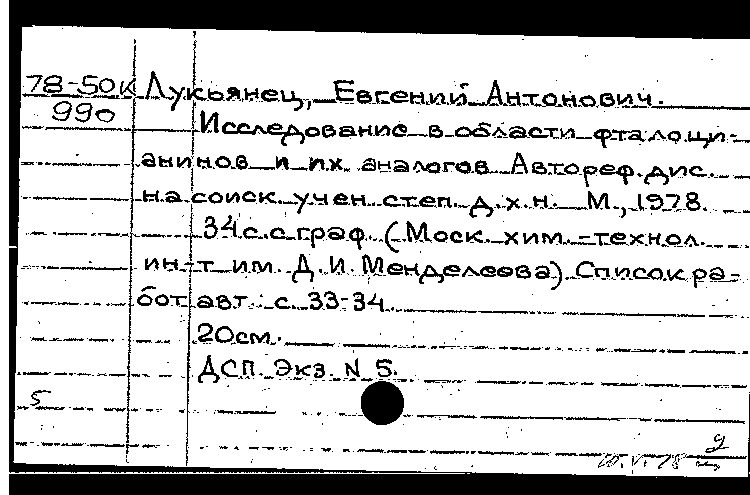 78-50к Лукьянец, Евгений Антонович.
990
Исследование в области фталоци-
анинов и их аналогов Автореф. дис.
на соиск. учен. степ. д. х. н. М., 1978.
34 с. с граф. (Моск. хим.-технол.
ин-т им. Д. И. Менделеева) Список ра-
бот авт.: с. 33-34.
20 см.
ДСП. Экз. N 5.
5